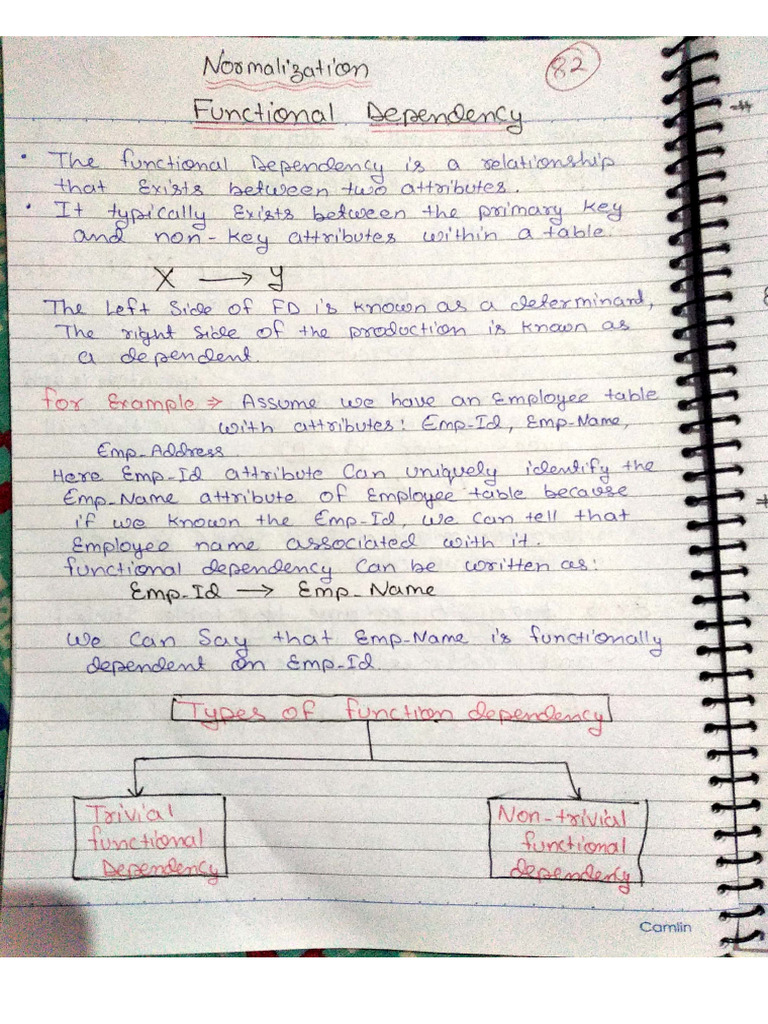 Normalization
82
Functional Dependency
• The functional Dependency is a relationship
that Exists between two attributes.
• It typically Exists between the primary key
and non-key attributes within a table.
X → Y
The Left Side of FD is known as a determinant,
The right side of the production is known as
a dependent.
for Example ⇒ Assume we have an Employee table
with attributes: Emp-Id, Emp-Name,
Emp-Address.
Here Emp-Id attribute Can uniquely identify the
Emp-Name attribute of Employee table because
if we known the Emp-Id, we can tell that
Employee name associated with it.
functional dependency Can be written as:
Emp-Id → Emp-Name
We Can Say that Emp-Name is functionally
dependent on Emp-Id.
Types of function dependency
Trivial
functional
Dependency
Non-trivial
functional
dependency
Camlin